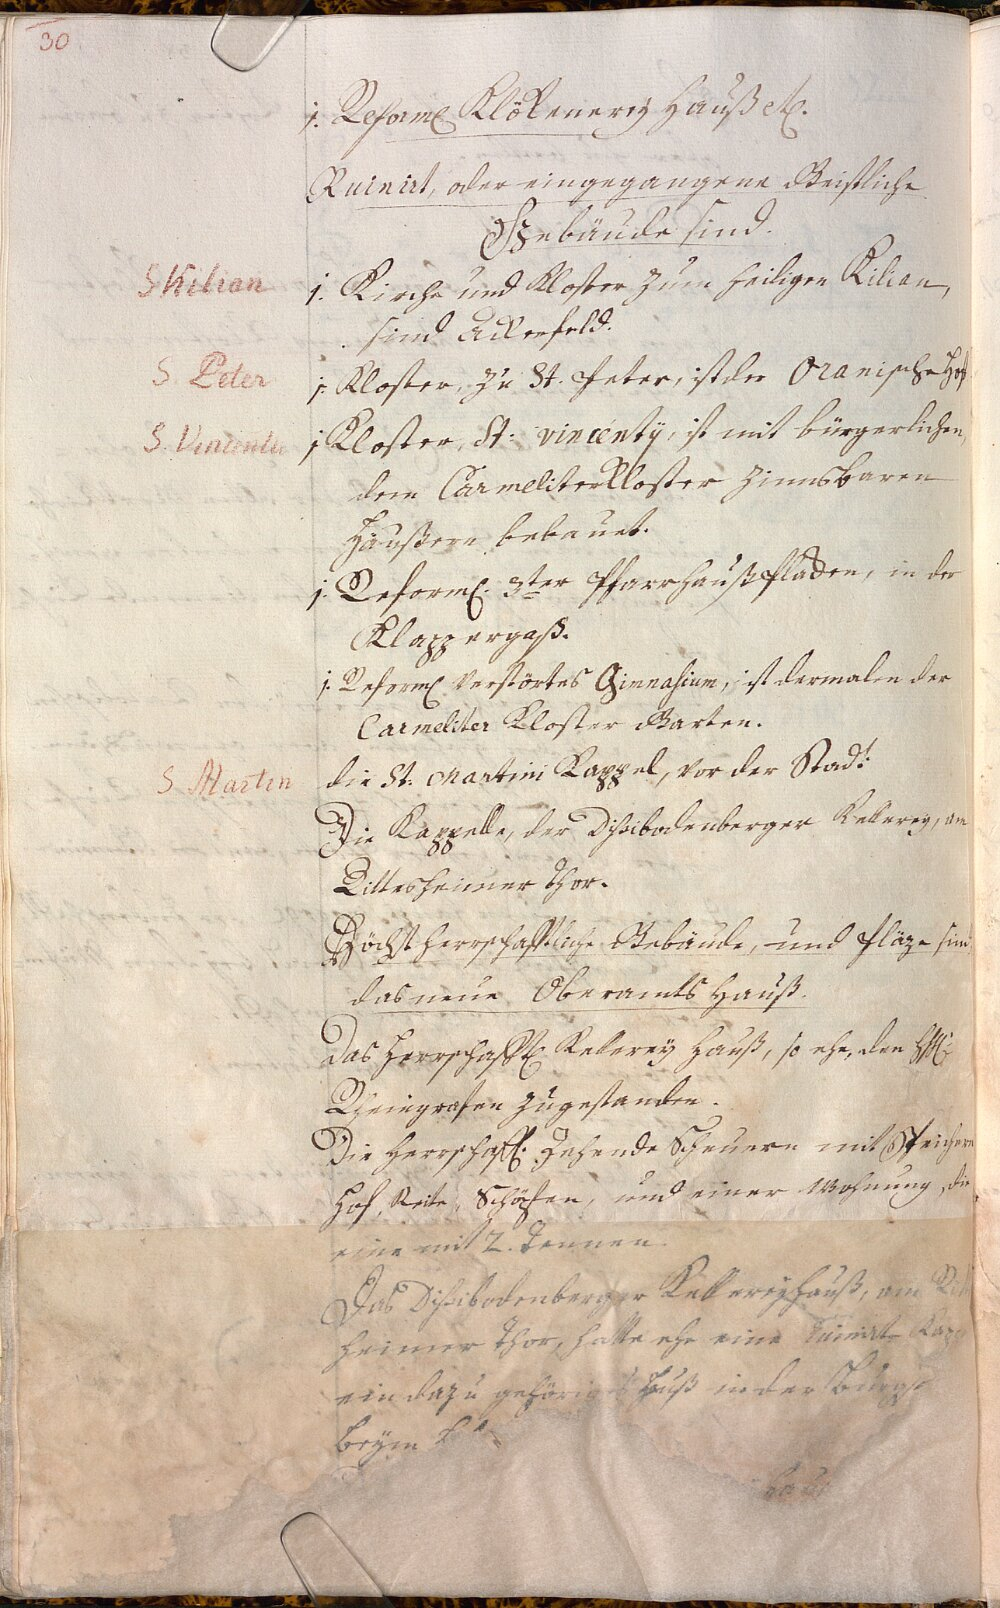 30
1. Reform. Klökenerey Hauß etc.
Ruinirt, oder eingegangene Geistliche
Gebäude sind.
S Kilian
1. Kirche und Kloster zum heiligen Kilian,
sind Ackerfeld.
S. Peter
1. Kloster, zu St. Peter, ist der Oranische Hoff
S. Vincenti
1 Kloster, St. Vincenty, ist mit bürgerlichen,
dem Carmeliterkloster zinnsbaren
Häußern bebauet.
1. Reform. 3ter Pfarrhauß Pläden, in der
Klappergaß.
1. Reform. verstörtes Gimnasium, ist dermalen der
Carmeliter Kloster Garten.
S Martin
die St. Martini Kappel, vor der Stadt
Die Kappelle, der Disibodenberger Kellerey, am
Rittesheimer Thor.
Höchst herrschafftliche Gebäude, und Pläze sind,
das neue Oberamts Hauß.
Das Herrschafftl. Kellerey Hauß, so ehe, den
Rheingrafen zugestanden.
Die Herrschafftl. Zehende Scheuern mit Speichern
Hof, Reite, Schöpfen, und einer Wohnung, die
eine mit 2. Tennen.
Das Disibodenberger Kellereyhauß, am
heimer Thor, hatte ehe eine Ruinirte
ein dazu gehöriges Hauß in der
beym